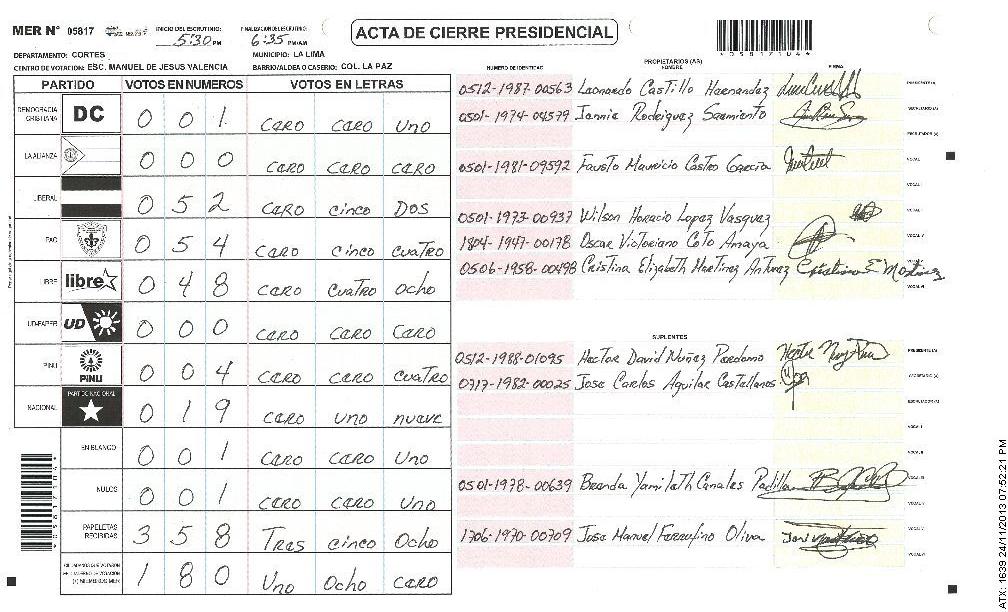 MER Nº 05817 INICIO DEL ESCRUTINIO: 5:30 PM FINALIZACION DEL ESCRUTINIO: 6:35 PM/AM
ACTA DE CIERRE PRESIDENCIAL
*058171044*
DEPARTAMENTO: CORTES MUNICIPIO: LA LIMA
CENTRO DE VOTACION: ESC. MANUEL DE JESUS VALENCIA BARRIO/ALDEA O CASERIO: COL. LA PAZ
PARTIDO VOTOS EN NUMEROS VOTOS EN LETRAS
DEMOCRACIA CRISTIANA DC 0 0 1 CERO CERO Uno
LA ALIANZA 0 0 0 CERO CERO CERO
LIBERAL 0 5 2 CERO cinco DOS
PAC 0 5 4 CERO cinco cuatro
LIBRE libre 0 4 8 CERO cuatro ocho
UD-FAPER UD 0 0 0 CERO CERO CERO
PINU PINU 0 0 4 CERO CERO cuatro
NACIONAL PARTIDO NACIONAL 0 1 9 CERO uno nueve
EN BLANCO 0 0 1 CERO CERO Uno
NULOS 0 0 1 CERO CERO Uno
PAPELETAS RECIBIDAS 3 5 8 Tres cinco Ocho
CIUDADANOS QUE VOTARON EN CUADERNO DE VOTACION (+) MIEMBROS MER 1 8 0 Uno Ocho CERO
PROPIETARIOS (AS)
NUMERO DE IDENTIDAD NOMBRE FIRMA
0512-1987-00563 Leonardo Castillo Hernandez PRESIDENTE(A)
0501-1974-04579 Jannie Rodriguez Sarmiento SECRETARIO(A)
ESCRUTADOR (A)
0501-1981-09592 Fausto Mauricio Castro Garcia VOCAL I
VOCAL II
0501-1973-00937 Wilson Horacio Lopez Vasquez
1804-1947-00178 Oscar Victoriano Coto Amaya VOCAL V
0506-1958-00498 Cristina Elizabeth Martinez Antunez Cristina E Martinez
VOCAL VI
SUPLENTES
0512-1988-01095 Hector David Nuñez Perdomo PRESIDENTE(A)
0717-1982-00025 Jose Carlos Aguilar Castellanos SECRETARIO (A)
ESCRUTADOR(A)
VOCAL I
VOCAL II
0501-1978-00639 Brenda Yamileth Canales Padilla VOCAL III
1706-1970-00709 Jose Manuel Ferrufino Oliva VOCAL V
VOCAL VI
*058171044*
ATX: 1639 24/11/2013 07:52:21 PM